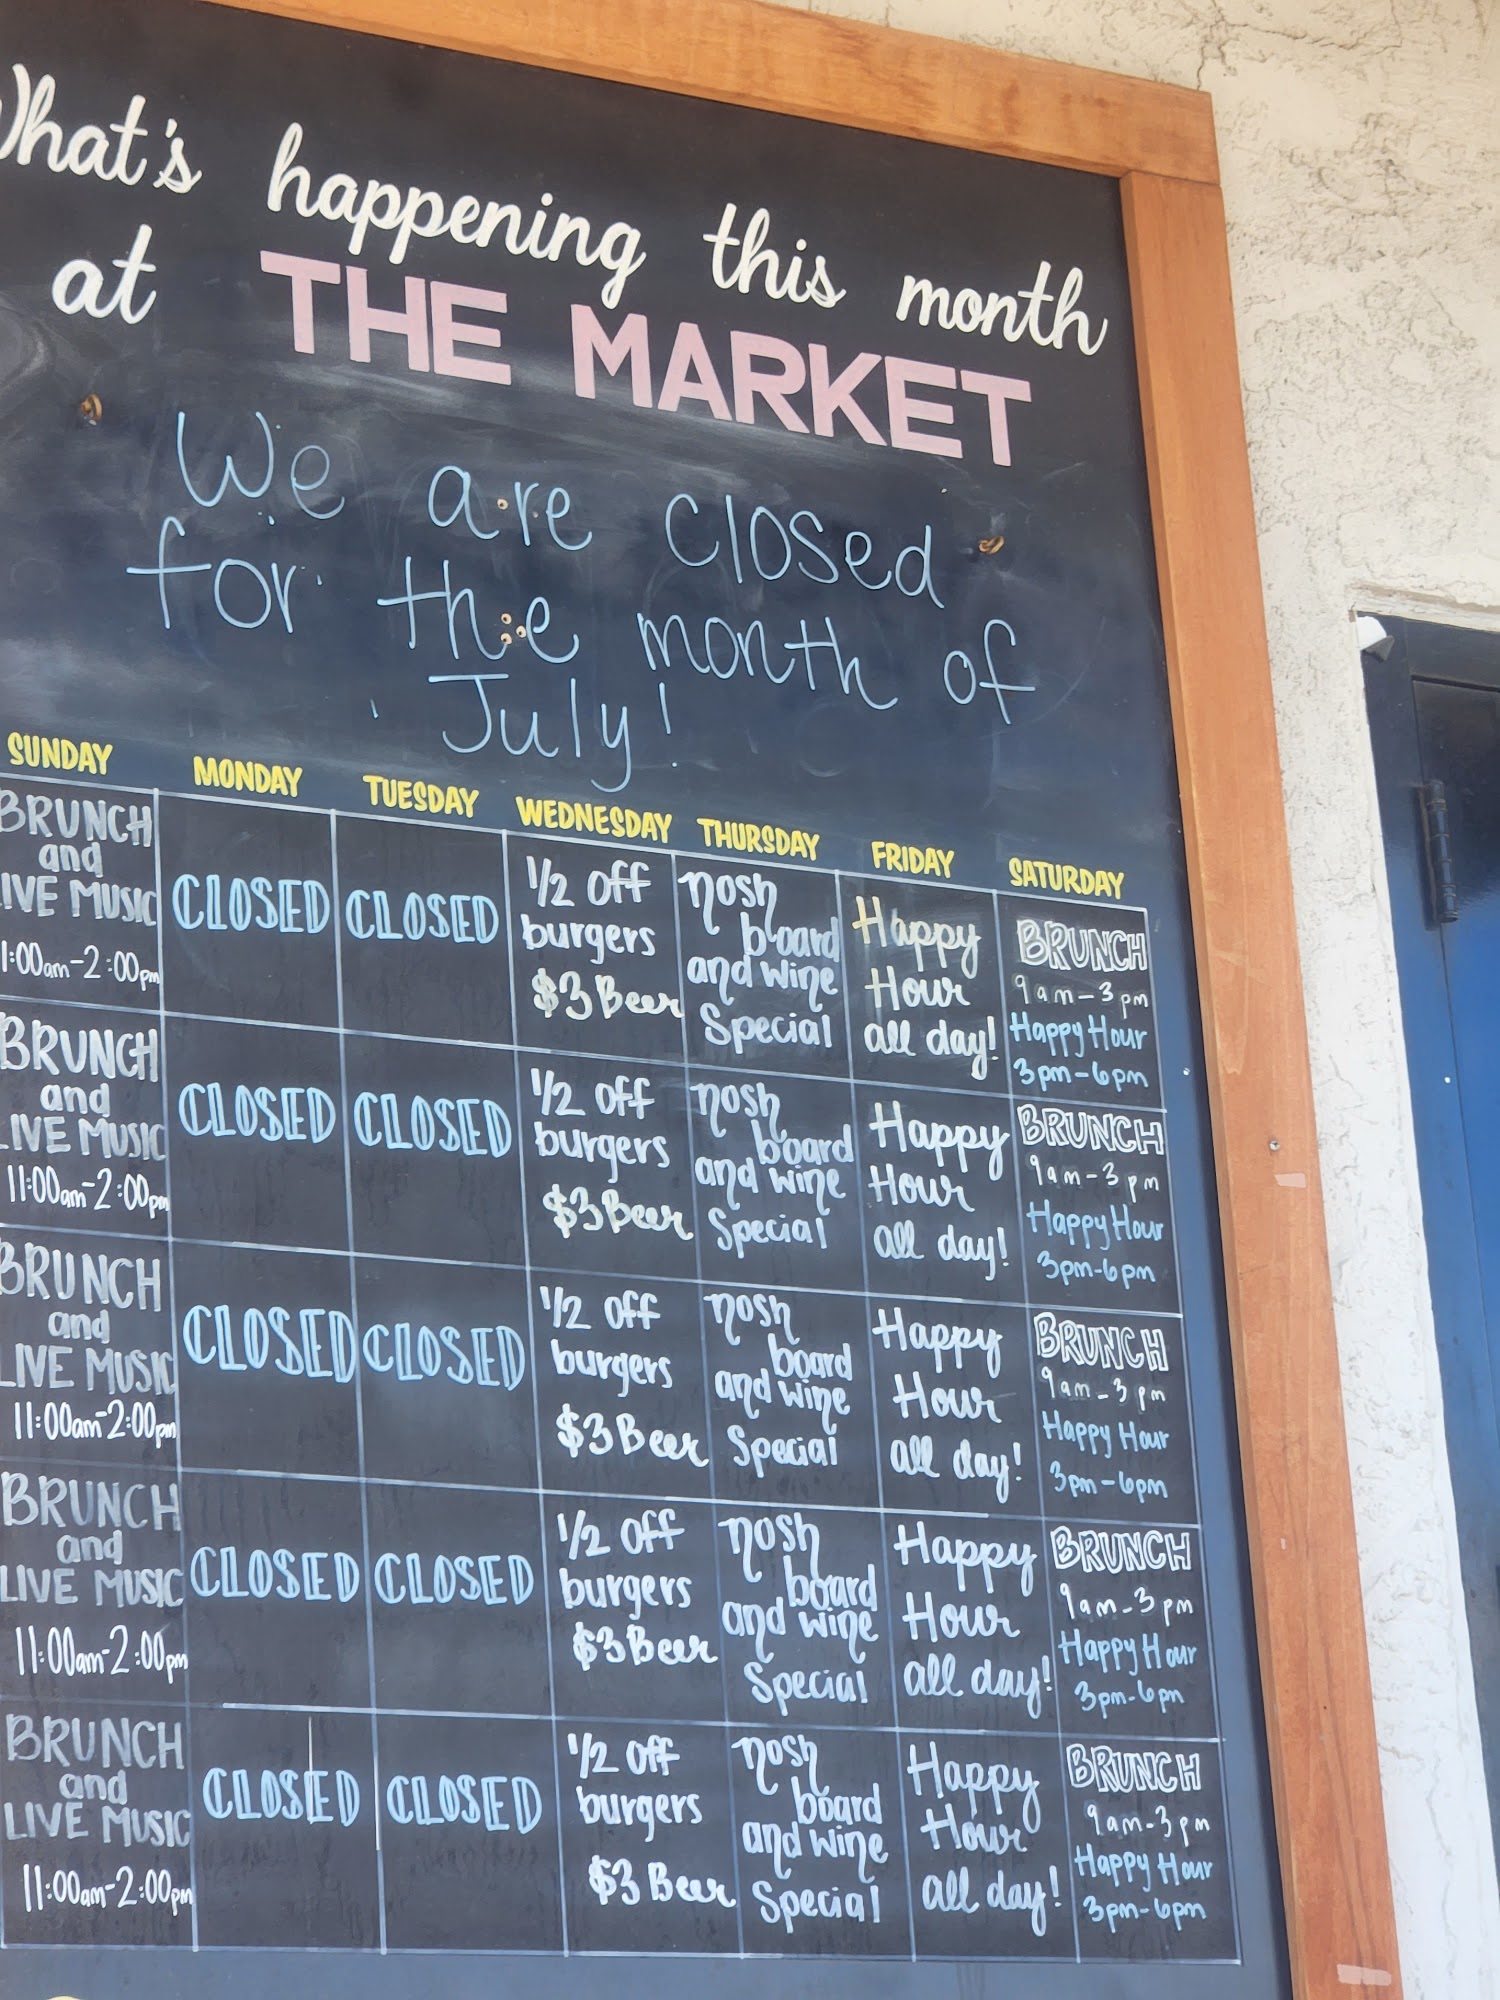 What's happening this month
at THE MARKET
We are closed
for the month of
July!
SUNDAY MONDAY TUESDAY WEDNESDAY THURSDAY FRIDAY SATURDAY
BRUNCH
and
LIVE MUSIC
1:00am-2:00pm
CLOSED
CLOSED
1/2 off
burgers
$3 Beer
nosh
board
and wine
Special
Happy
Hour
all day!
BRUNCH
9am-3pm
Happy Hour
3pm-6pm
BRUNCH
and
LIVE MUSIC
11:00am-2:00pm
CLOSED
CLOSED
1/2 off
burgers
$3 Beer
nosh
board
and wine
Special
Happy
Hour
all day!
BRUNCH
9am-3pm
Happy Hour
3pm-6pm
BRUNCH
and
LIVE MUSIC
11:00am-2:00pm
CLOSED
CLOSED
1/2 off
burgers
$3 Beer
nosh
board
and wine
Special
Happy
Hour
all day!
BRUNCH
9am-3pm
Happy Hour
3pm-6pm
BRUNCH
and
LIVE MUSIC
11:00am-2:00pm
CLOSED
CLOSED
1/2 off
burgers
$3 Beer
nosh
board
and wine
Special
Happy
Hour
all day!
BRUNCH
9am-3pm
Happy Hour
3pm-6pm
BRUNCH
and
LIVE MUSIC
11:00am-2:00pm
CLOSED
CLOSED
1/2 off
burgers
$3 Beer
nosh
board
and wine
Special
Happy
Hour
all day!
BRUNCH
9am-3pm
Happy Hour
3pm-6pm